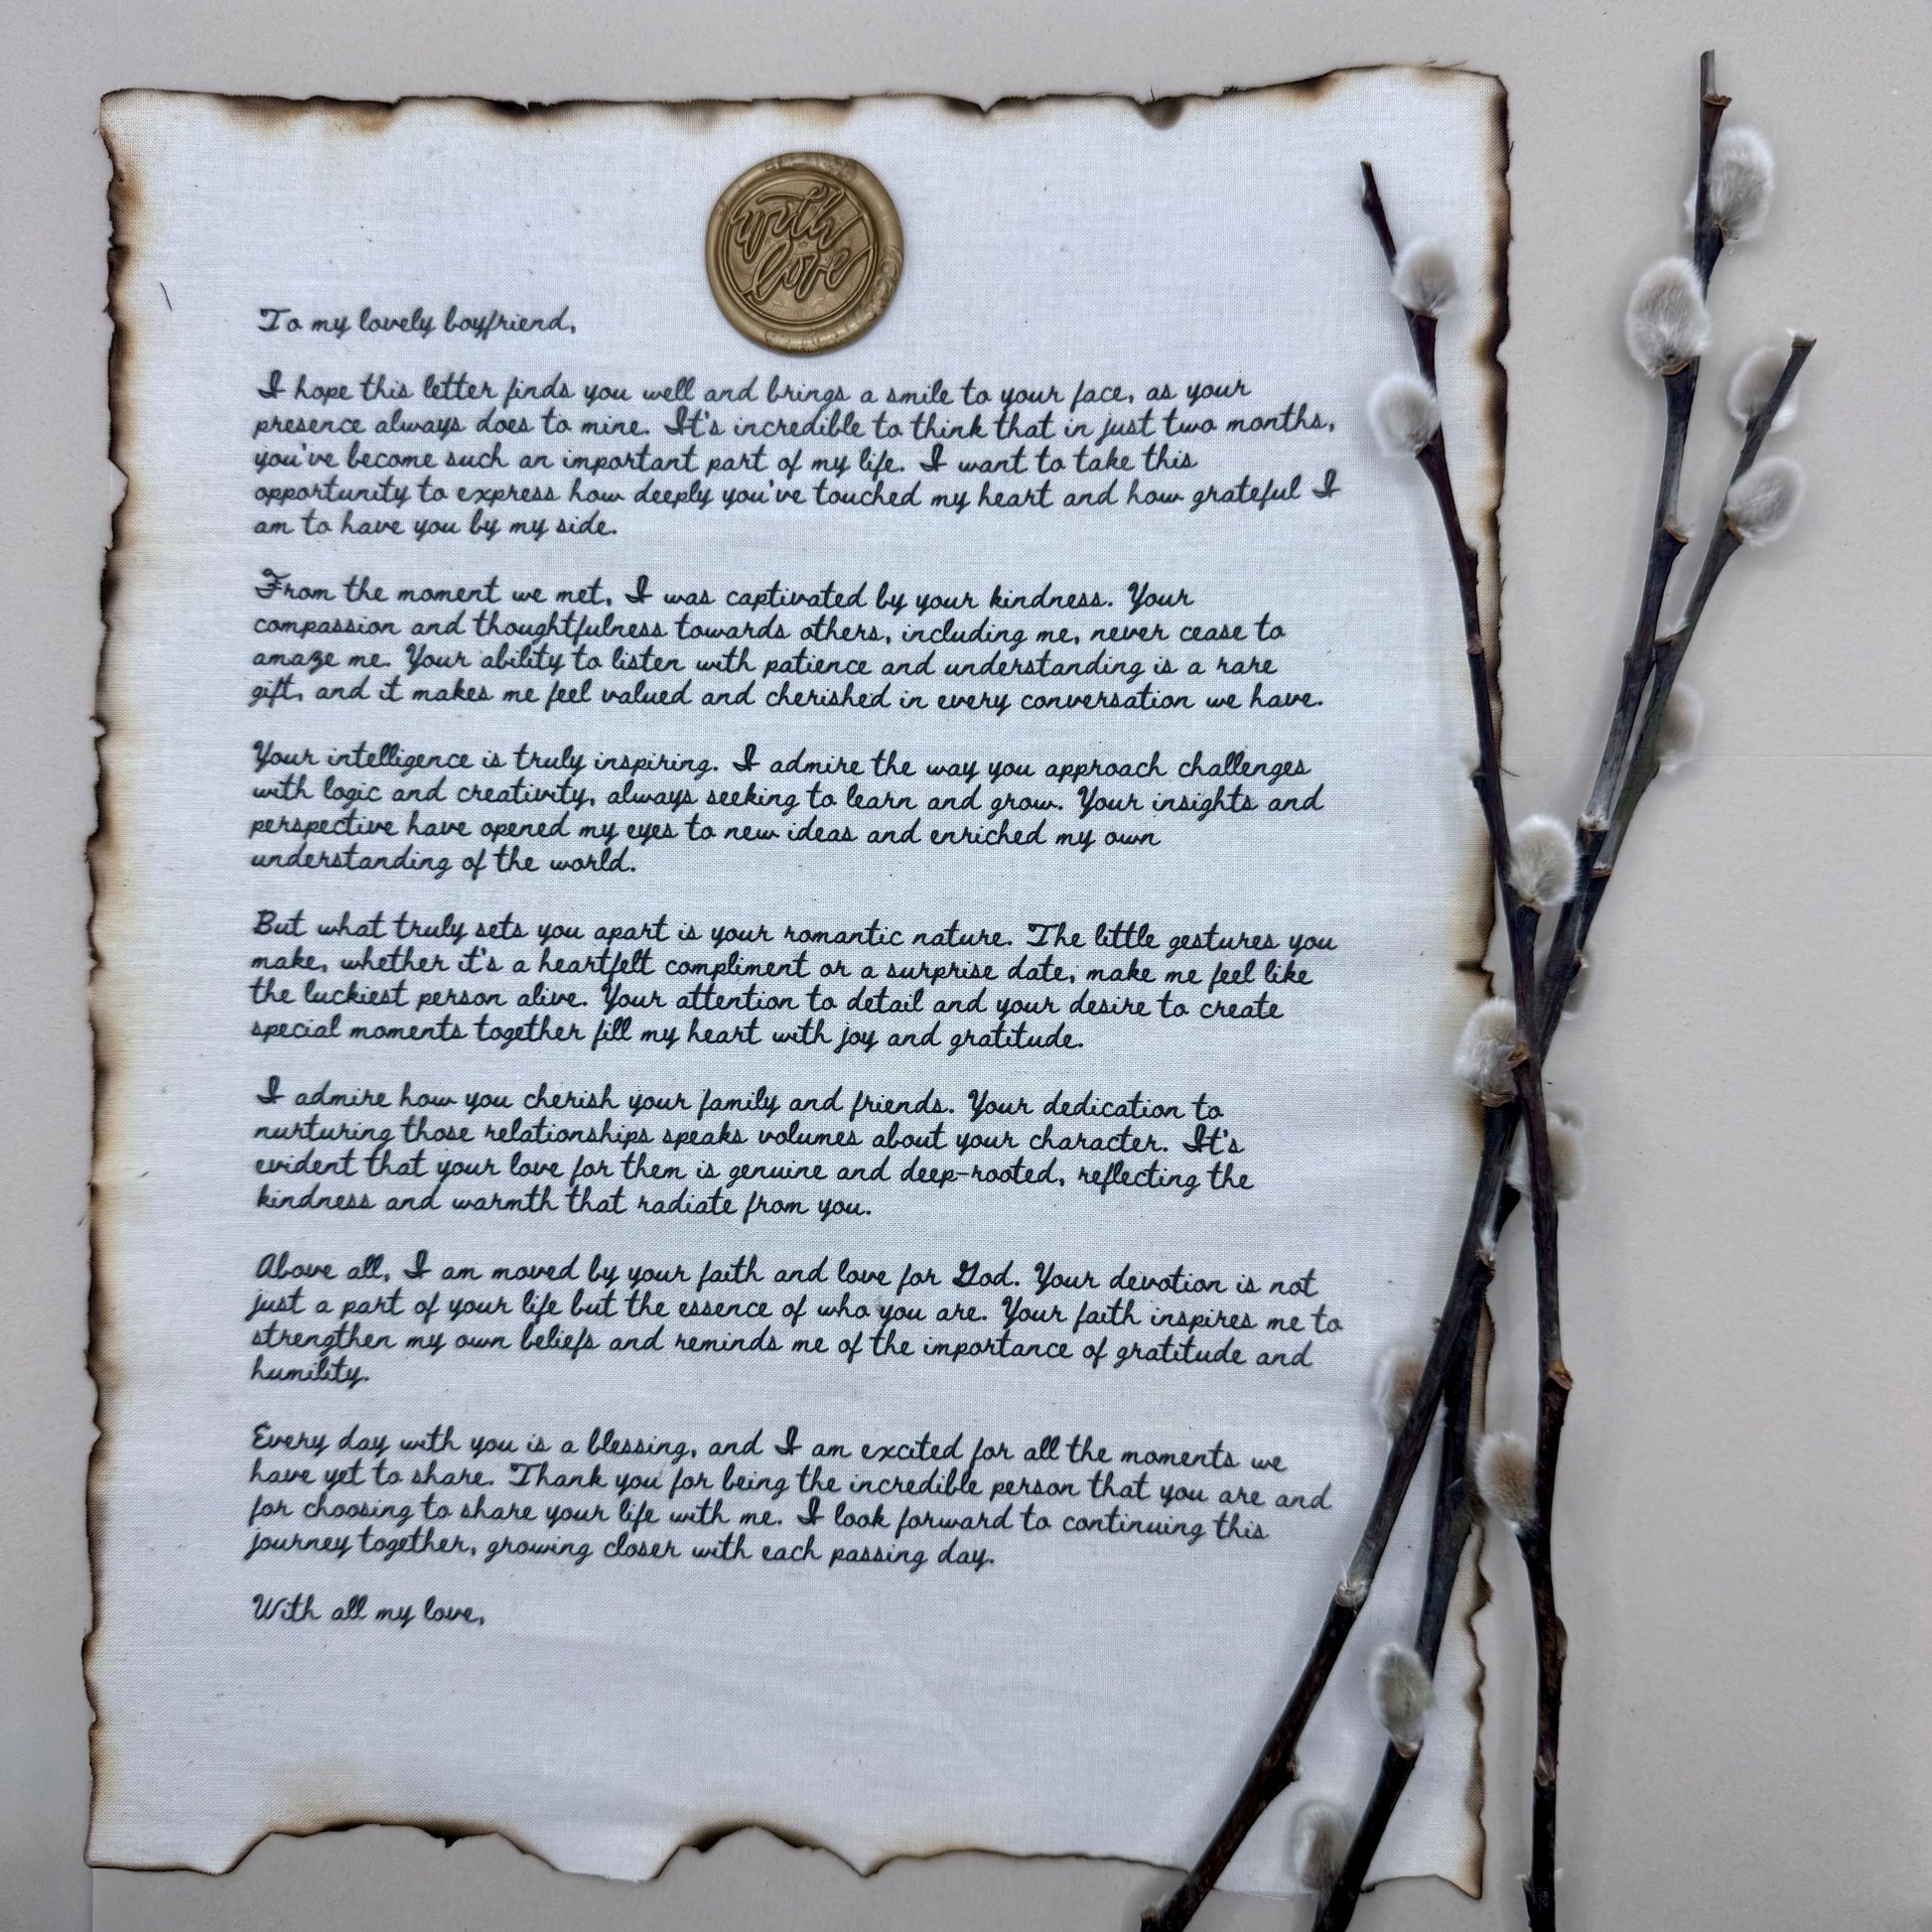 with
love
To my lovely boyfriend,
I hope this letter finds you well and brings a smile to your face, as your
presence always does to mine. It's incredible to think that in just two months,
you've become such an important part of my life. I want to take this
opportunity to express how deeply you've touched my heart and how grateful I
am to have you by my side.
From the moment we met, I was captivated by your kindness. Your
compassion and thoughtfulness towards others, including me, never cease to
amaze me. Your ability to listen with patience and understanding is a rare
gift, and it makes me feel valued and cherished in every conversation we have.
Your intelligence is truly inspiring. I admire the way you approach challenges
with logic and creativity, always seeking to learn and grow. Your insights and
perspective have opened my eyes to new ideas and enriched my own
understanding of the world.
But what truly sets you apart is your romantic nature. The little gestures you
make, whether it's a heartfelt compliment or a surprise date, make me feel like
the luckiest person alive. Your attention to detail and your desire to create
special moments together fill my heart with joy and gratitude.
I admire how you cherish your family and friends. Your dedication to
nurturing those relationships speaks volumes about your character. It's
evident that your love for them is genuine and deep-rooted, reflecting the
kindness and warmth that radiate from you.
Above all, I am moved by your faith and love for God. Your devotion is not
just a part of your life but the essence of who you are. Your faith inspires me to
strengthen my own beliefs and reminds me of the importance of gratitude and
humility.
Every day with you is a blessing, and I am excited for all the moments we
have yet to share. Thank you for being the incredible person that you are and
for choosing to share your life with me. I look forward to continuing this
journey together, growing closer with each passing day.
With all my love,